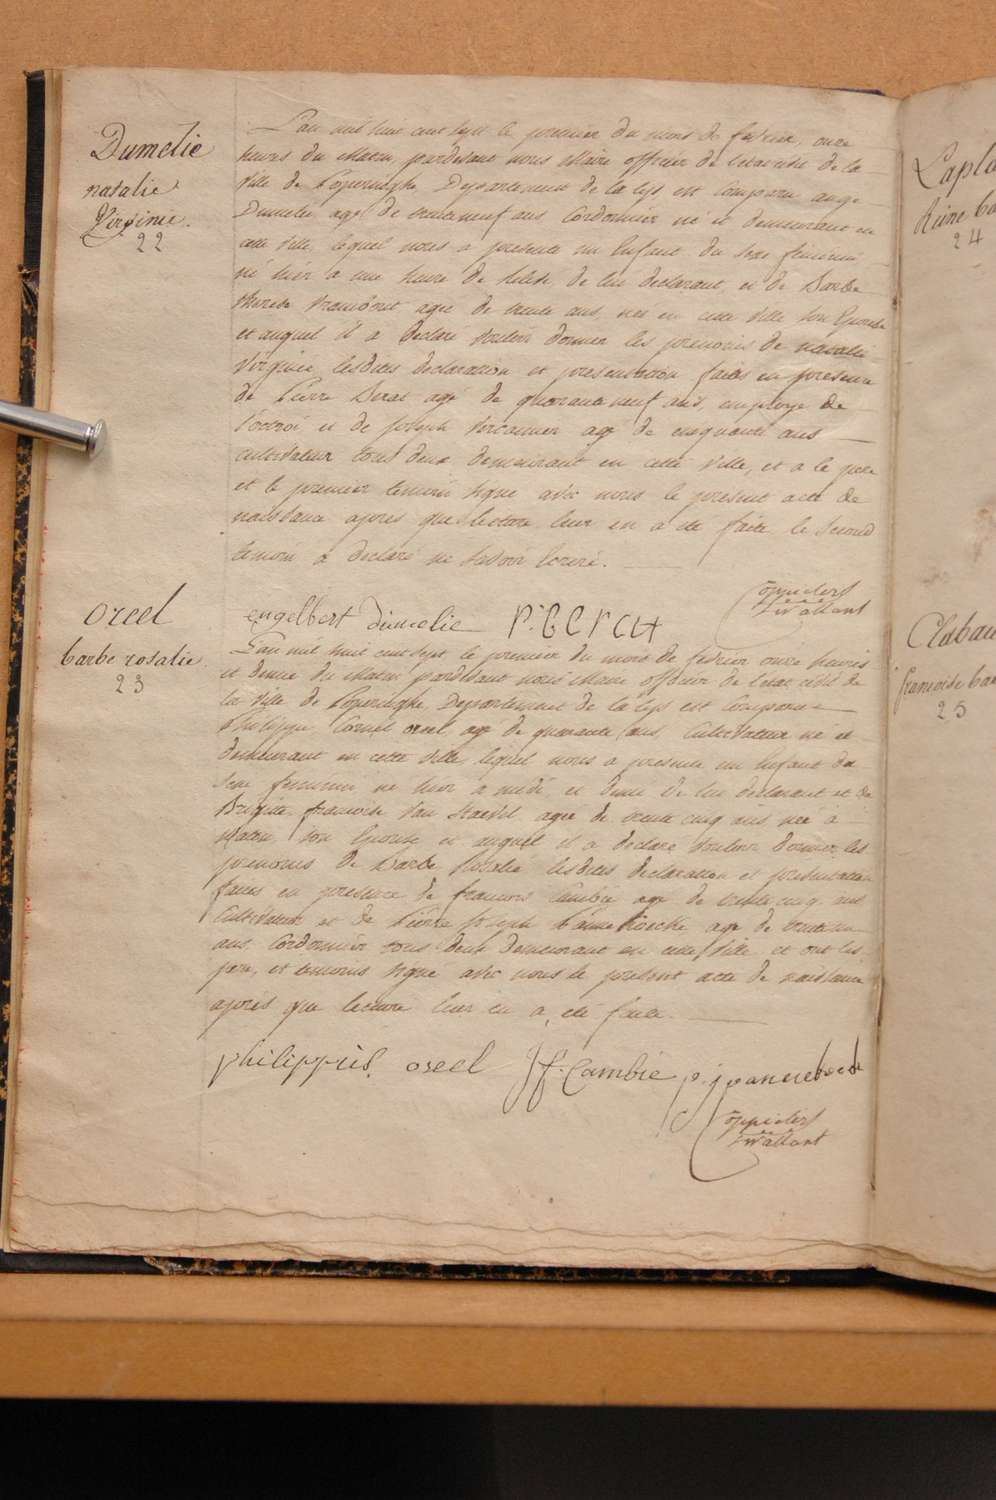 Dumelie
natalie
Virginie.
22
L'an mil huit cent sept le premier du mois de fevrier, onze
heures du Matin, pardevant nous Maire officier de l'etat civil de la
ville de Poperinghe, Departement de la Lys est comparu ange
Dumelie agé de trente neuf ans Cordonnier né et demeurant en
cette ville, lequel nous a presenté un Enfant du sexe féminin
né hier a une heure de de lui declarant, et de Barbe
therese agée de trente ans, née en cette ville son Epouse
et auquel il a declaré vouloir donner les prenoms de natalie
Virginie, lesdites declaration et presentation faites en presence
de Pierre agé de quarante neuf ans, employé de
l'octroi et de joseph agé de cinquante ans
cultivateur tous deux demeurant en cette ville, et a le pere
et le premier temoin signé avec nous le present acte de
naissance apres que lecture leur en a été faite, le second
temoin a declaré ne savoir ecrire.
engelbert dumelie
orcel
barbe rosalie
23
L'an mil huit cent sept le premier du mois de fevrier onze heures
et demie du Matin pardevant nous Maire officier de l'etat civil de
la ville de Poperinghe, Departement de la Lys est Comparu
Philippe Cornil orcel, agé de quarante ans, Cultivateur né et
demeurant en cette ville, lequel nous a presenté un Enfant du
sexe feminin né hier a midi et demi de lui declarant et de
Brigitte francoise Van agée de trente cinq ans née à
Watou, son Epouse et auquel il a declaré vouloir donner les
prenoms de Barbe Rosalie lesdites declaration et presentation
faites en presence de francois Cambie agé de trente cinq ans
Cultivateur et de Pierre Joseph agé de trente un
ans Cordonnier tous deux demeurant en cette ville, et ont les
pere, et temoins signé avec nous le present acte de naissance
après que lecture leur en a été faite.
philippus. orcel f. Cambie
Lapla
Reine
24
Clabau
francoise
25